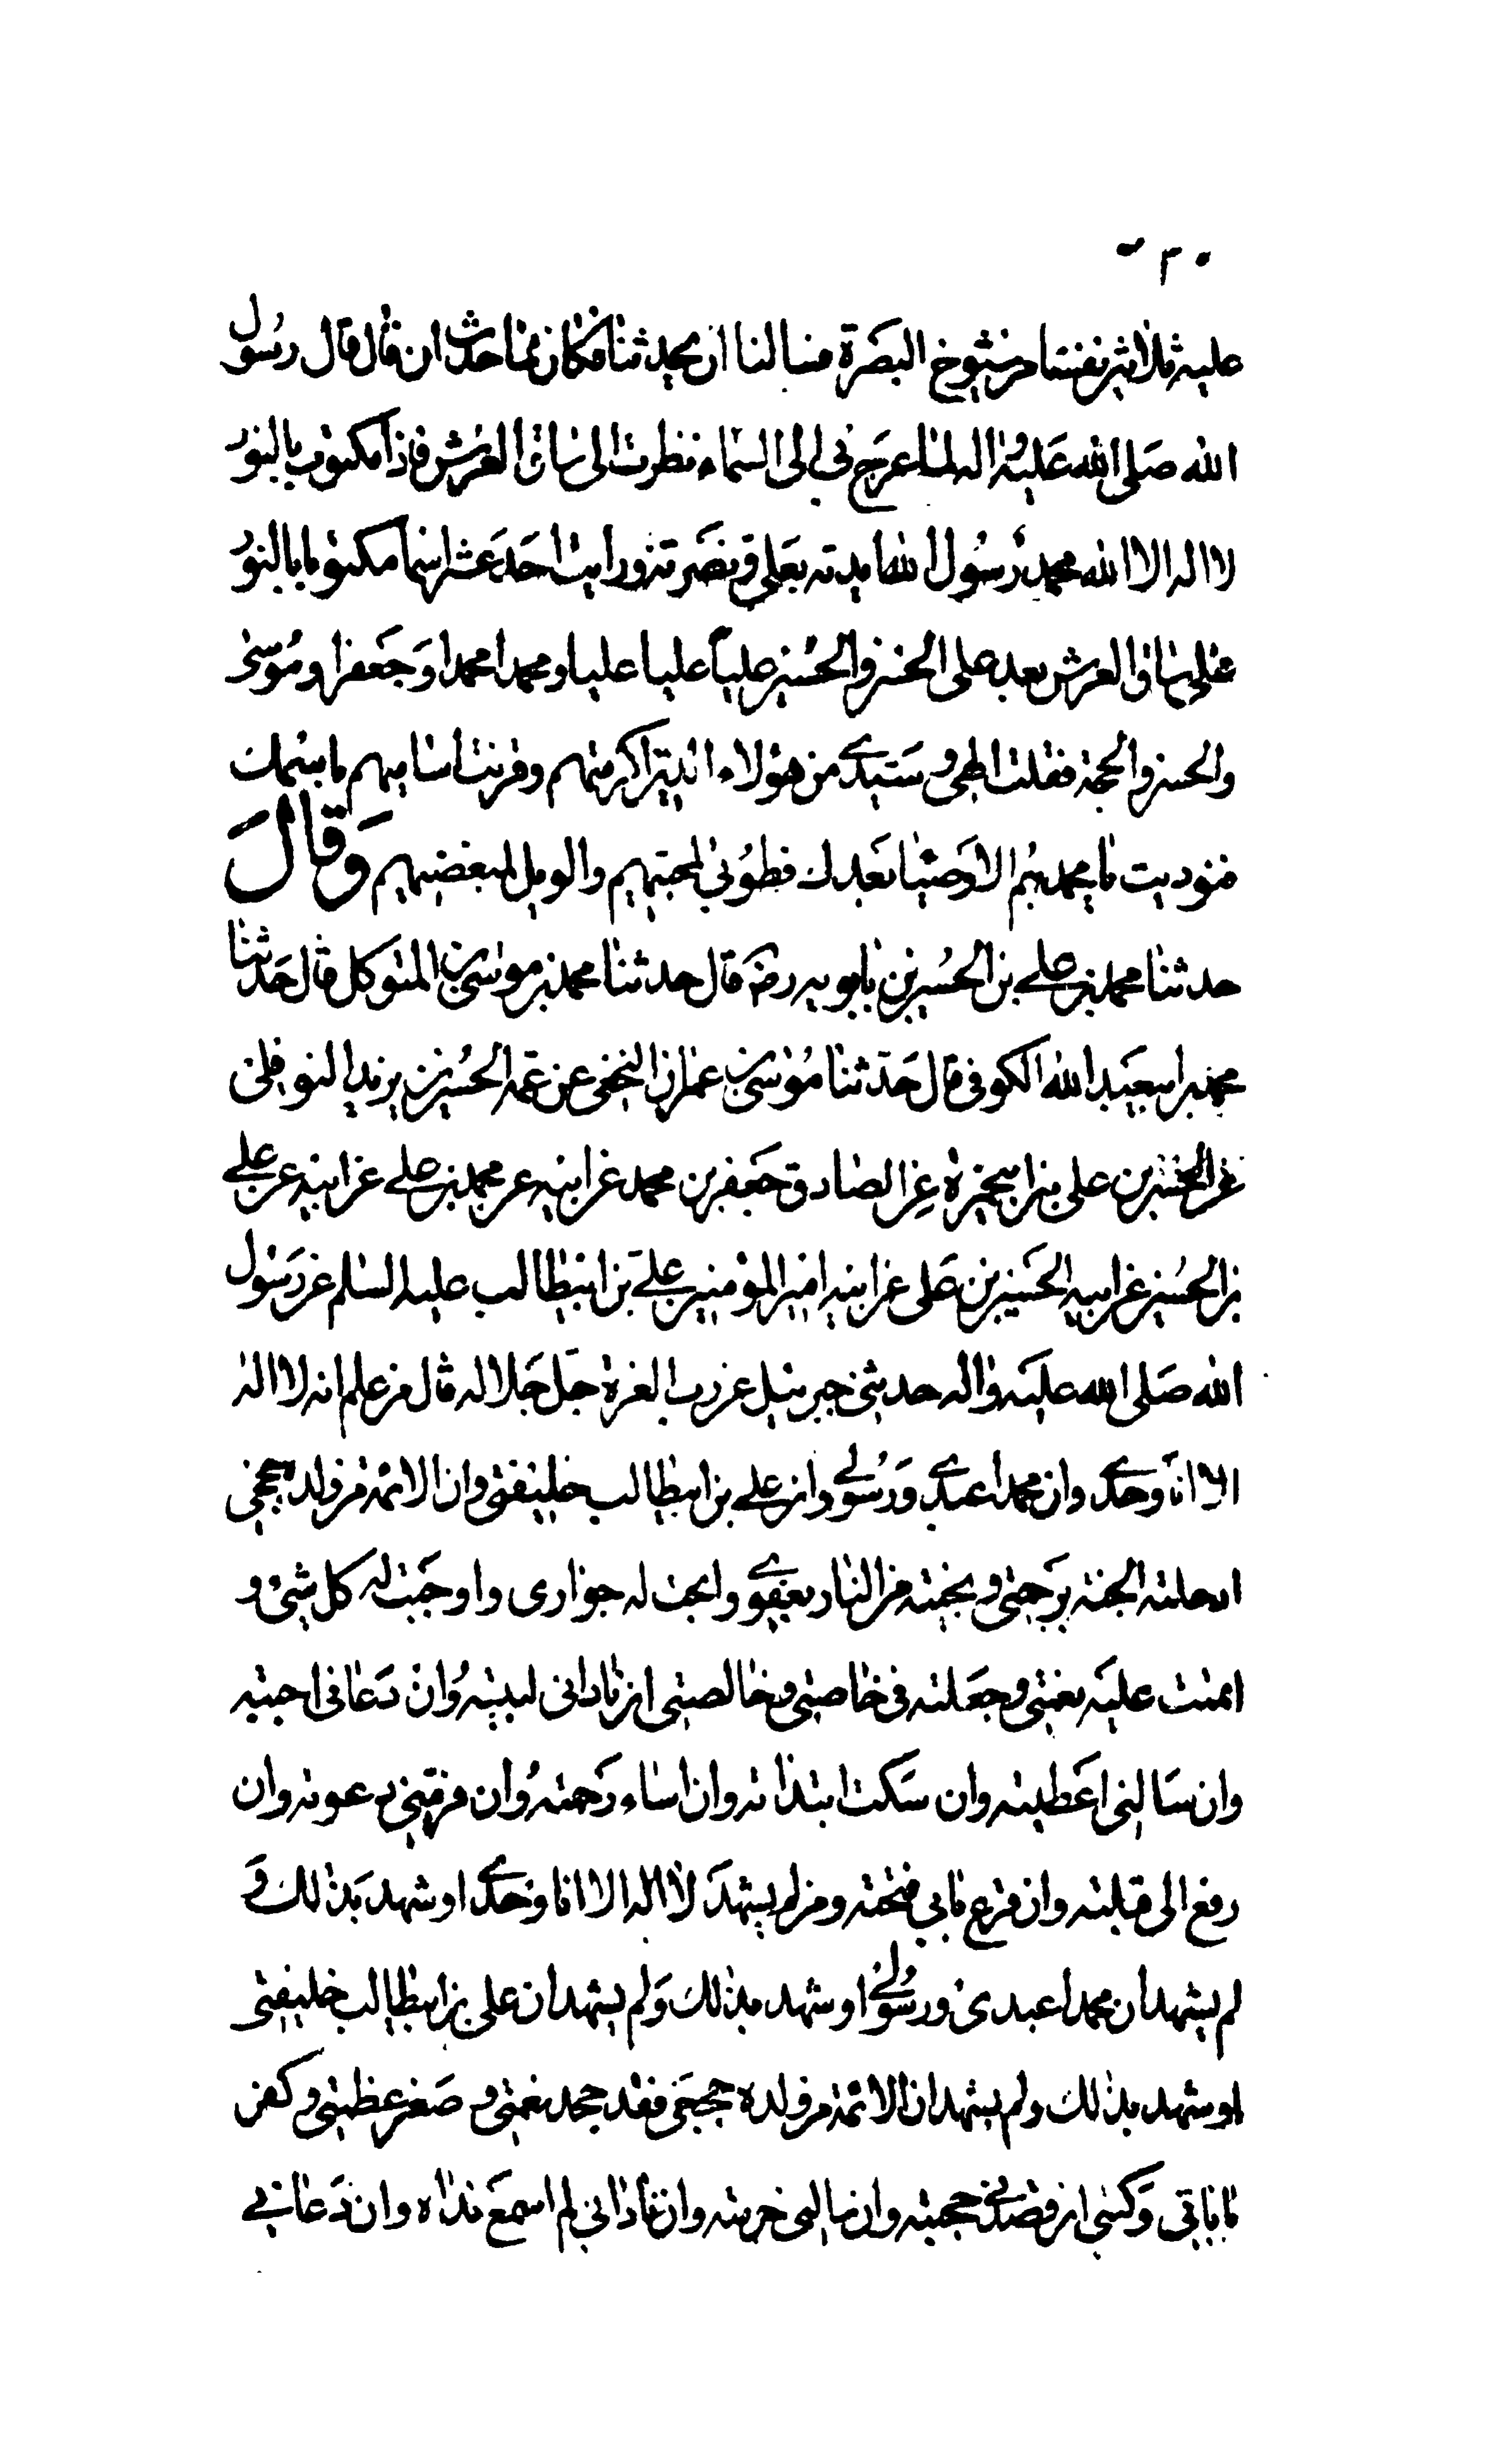 ٢٠
عليه ثلاثة نفسا من شيوخ البصرة فسالنا ان يحدثنا فكان مما حدث ان قال قال رسول
الله صلى الله عليه واله لما عرج بي الى السماء نظرت الى ساق العرش فاذا مكتوب بالنور
لا اله الا الله محمد رسول الله ايدته بعلي ونصرته ورايت احد عشر اسما مكتوبا بالنور
على ساق العرش بعد علي الحسن والحسين عليا عليا عليا ومحمدا محمدا وجعفرا وموسى
والحسن والحجة فقلت الهي وسيدي من هؤلاء الذين اكرمتهم وقرنت اسمائهم باسمك
فنوديت يا محمد هم الاوصياء بعدك فطوبى لمحبيهم والويل لمبغضيهم وقال
حدثنا محمد بن علي بن الحسين بن بابويه رضه قال حدثنا محمد بن موسى بن المتوكل قال حدثنا
محمد بن ابي عبد الله الكوفي قال حدثنا موسى بن عمران النخعي عن عمه الحسين بن يزيد النوفلي
عن الحسن بن علي بن ابي حمزة عن الصادق جعفر بن محمد عن ابيه عن محمد بن علي عن ابيه عن علي
بن الحسين عن ابيه الحسين بن علي عن ابيه امير المؤمنين علي بن ابيطالب عليه السلم عن رسول
الله صلى الله عليه واله حدثني جبرئيل عن رب العزة جل جلاله قال من علم انه لا اله
الا انا وحدي وان محمدا عبدي ورسولي وان علي بن ابيطالب خليفتي وان الائمة من ولده حججي
ادخلته الجنة برحمتي ونجيته من النار بعفوي وابحت له جواري واوجبت له كل شيء و
اتممت عليه نعمتي وجعلته في خاصتي وخالصتي ان ناداني لبيته وان دعاني اجبته
وان سالني اعطيته وان سكت ابتداته وان اساء رحمته وان فر مني دعوته وان
رفع الى قبلته وان قرع بابي فتحته ومن لم يشهد لا اله الا انا وحدي او شهد بذلك و
لم يشهد ان محمدا عبدي ورسولي او شهد بذلك ولم يشهد ان علي بن ابيطالب خليفتي
او شهد بذلك ولم يشهد ان الائمة من ولده حججي فقد جحد نعمتي وصغر عظمتي وكفر
باياتي وكتبي ان قصدني حجبته وان سالني حرمته وان ناداني لم اسمع نداه وان دعاني